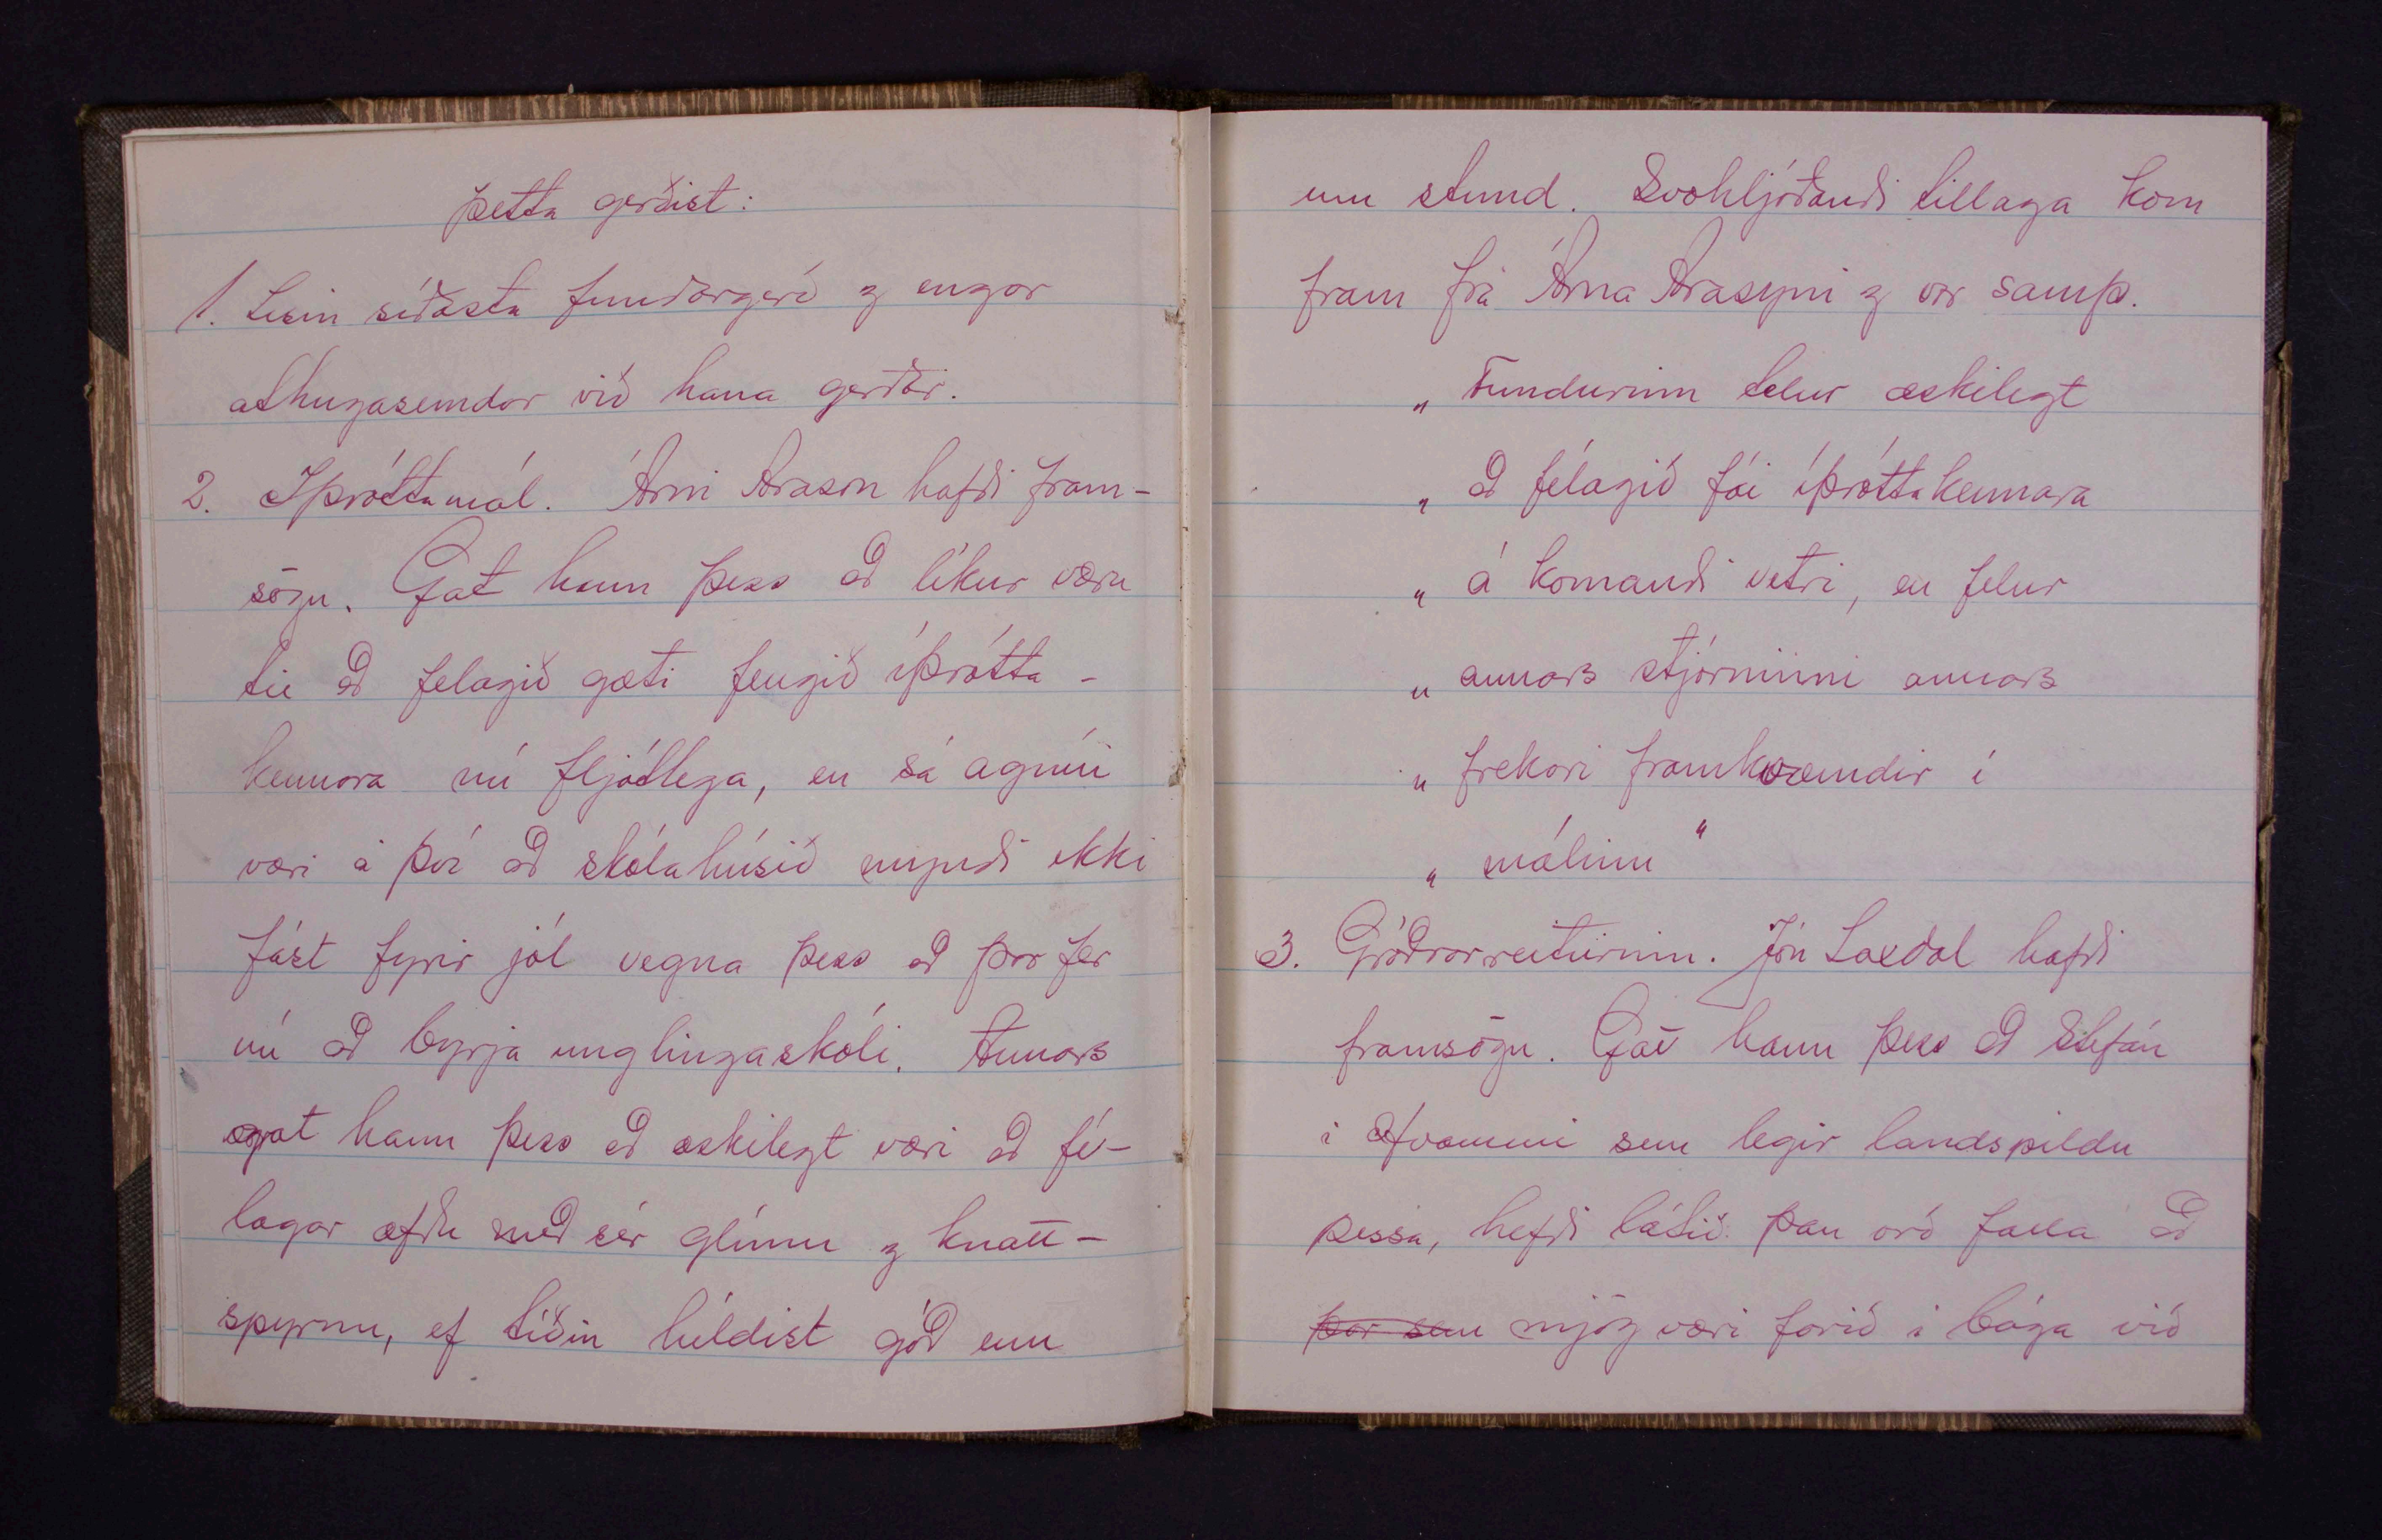 Þetta gerðist:
1. Lesin síðasta fundargerð og engar
athugasemdar við hana gerðar.
2. Íþróttamál. Árni Arason hafði fram-
sögu. Gat hann þess að líkur væru
til að felagið gæti fengið íþrótta-
kennara nú fljótlega, en sá agnúi
væri á því að skólahúsið myndi ekki
fást fyrir jól vegna þess að þar fer
nú að byrja unglingaskóli. Annars
gat hann þess að æskilegt væri að fé-
lagar æfðu með sér glímu og knatt-
spyrnu, ef tíðin héldist góð enn
um stund. Svohljóðandi tillaga kom
fram frá Árna Arasyni og var samþ.
„ Fundurinn telur æskilegt
„ að félagið fái íþróttakennara
„ á komandi vetri, en felur
„ annars stjórninni annars
„ frekari framkvæmdir í
„ málinu “
3. Gróðrarreiturinn. Jón Laxdal hafði
framsögu. Gat hann þess að Stefán
í Hvammi sem legir landspildu
þessa, hefði látið þau orð falla að
þar sem mjög væri farið í bága við